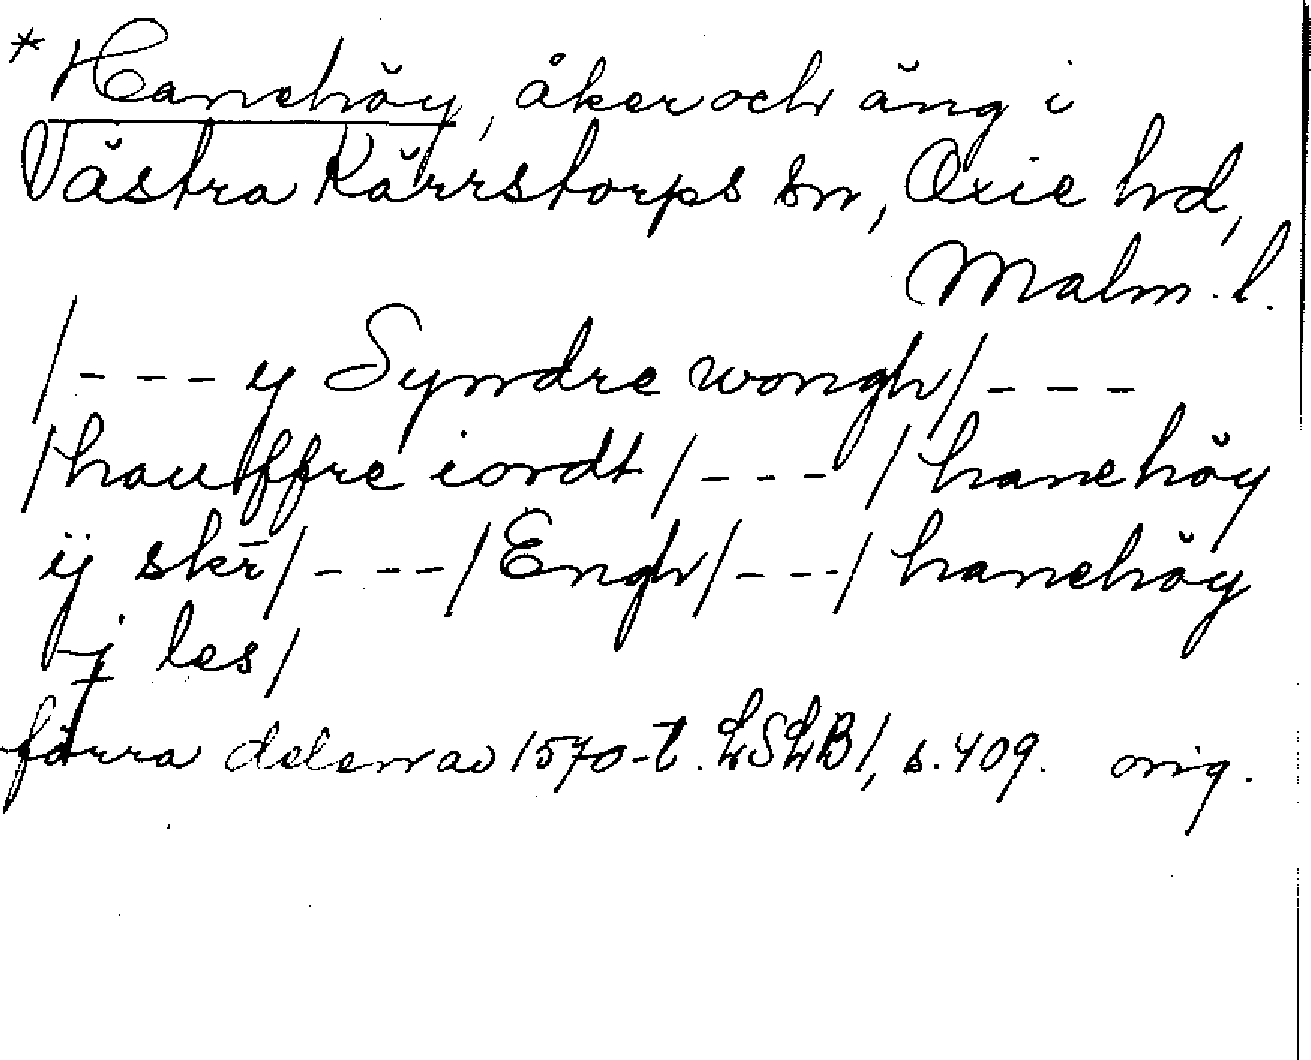 * Hanehöy, åker och äng i
Västra Kärrstorps sn, Oxie hd,
Malm. l.
/ - - - y Syndre wongh / - - -
/ hauffre iordt / - - - / hanehöy
ij skr̄ / - - - / Engh / - - - / hanehöy
j les /
förra delen av 1570-t. LSLB 1, s. 409. orig.